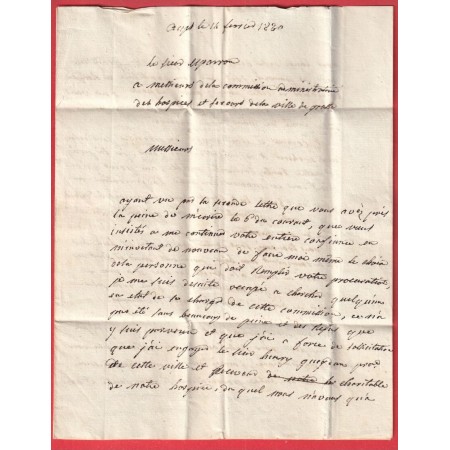 le 14 fevrier 1830
le sieur
a messieurs de la commission administrative
des hospices et secours de la ville de
Messieurs
ayant vu par la seconde lettre que vous avez pris
la peine de m'ecrire le 6 du courant, que vous
insistés a me continuer votre entiere confiance en
m'invitant de nouveau de faire moi meme le choix
de la personne qui doit remplir votre procuration
je me suis de suite occupé a chercher quelqu'un
en etat de se charger de cette commission, ce n'a
pas été sans beaucoup de peine et des refus que
y suis parvenu et que j'ai a force de sollicitation
que j'ai engagé le sieur
de cette ville et de la charitable
de notre hospice, du quel nous n'avons qu'a